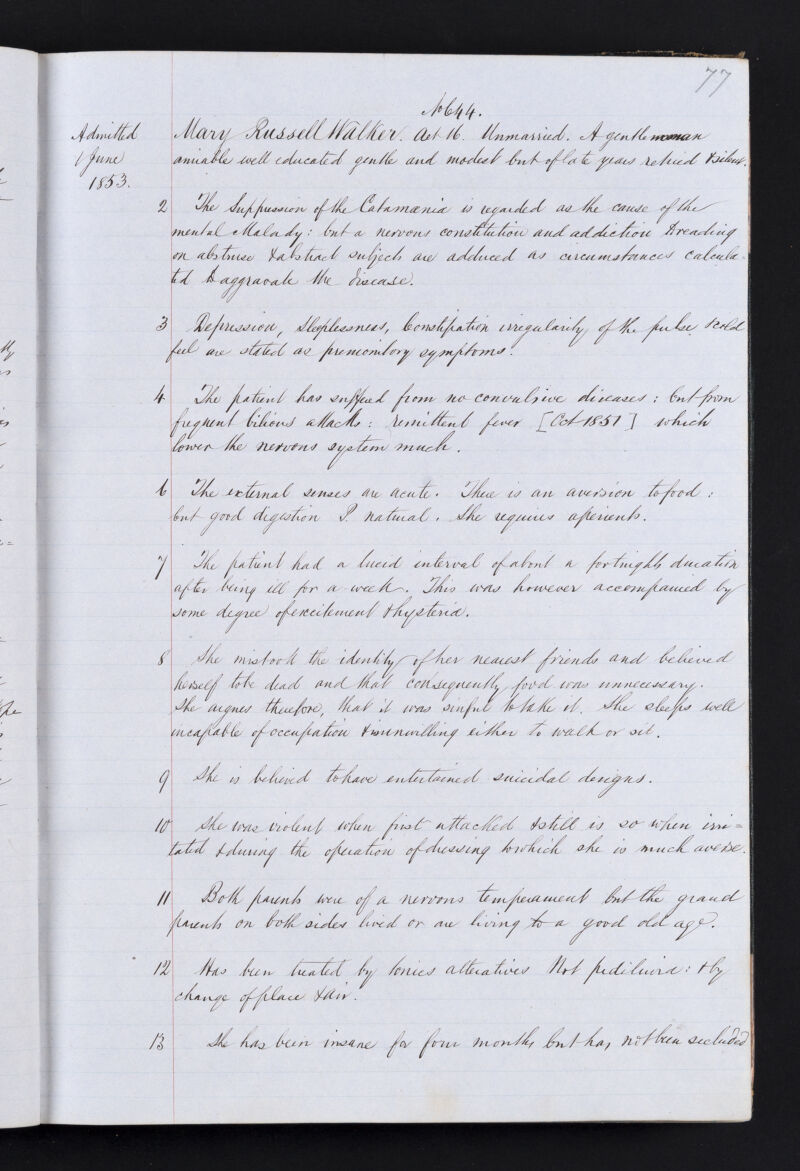 77
No 644.
Admitted
1 June
1853.
Mary Russell Walker. Aet 16. Unmarried. A gentlewoman
amiable well educated gentle and modest but of late years retired & silent.
2 The Suppression of the Catamaenia is regarded as the cause of the
mental Malady: but a nervous constitution and addiction to reading
on abstruse & abstract subjects are adduced as circumstances calcula-
ted to aggravate the disease.
3 Depression, Sleeplessness, Constipation irregularity of the pulse & cold
feet are stated as premonitory symptoms.
4 The patient has suffered from no convulsive diseases: but from
frequent bilious attacks: remittent fever [Oct 1851] which
lower the nervous system much.
6 The external senses are acute. There is an aversion to food:
but good digestion P. natural. She requires aperients.
7 The patient had a lucid interval of about a fortnights duration
after being ill for a week. This was however accompanied by
some degree of excitement & hysteria.
8 She mistook the identity of her nearest friends and believed
herself to be dead and that consequently food was unnecessary.
She argues therefore, that it was sinful to take it. She sleeps well
incapable of occupation & is unwilling either to walk or sit.
9 She is believed to have entertained suicidal designs.
10 She was violent when first attacked & still is so when irri=
tated & during the operation of dressing to which she is much averse.
11 Both parents were of a nervous temperament but the grand
parents on both sides lived or are living to a good old age.
12 Has been treated by tonics alteratives Hot pediluvia: & by
change of place & air.
13 She has been insane for four months but has not been secluded